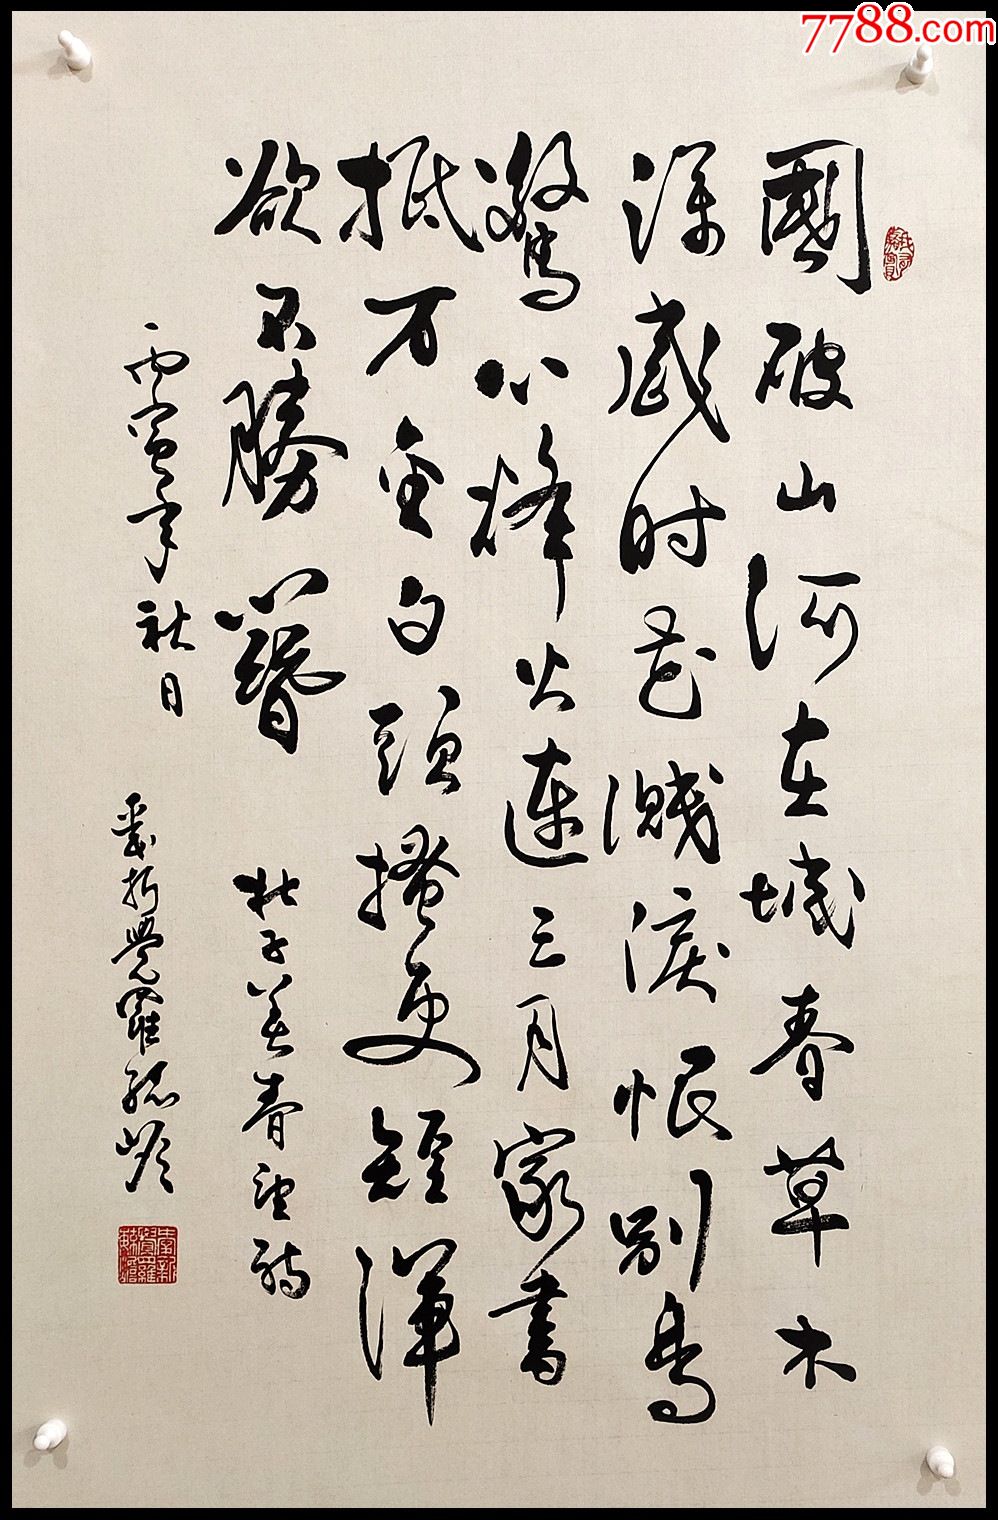 7788.com
國破山河在城春草木
深感时花濺淚恨别鳥
驚心烽火連三月家書
抵万金白頭搔更短渾
欲不勝簪 杜子美春望詩
丙寅年秋日 愛新覺羅毓